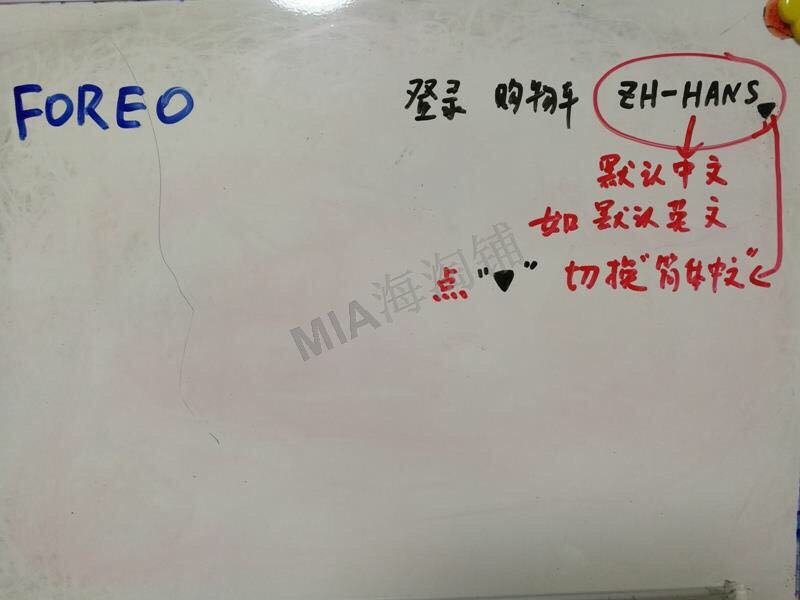 FOREO
登录 购物车 ZH-HANS▼
默认中文
如默认英文
点"▼" 切换"简体中文"
MIA海淘铺